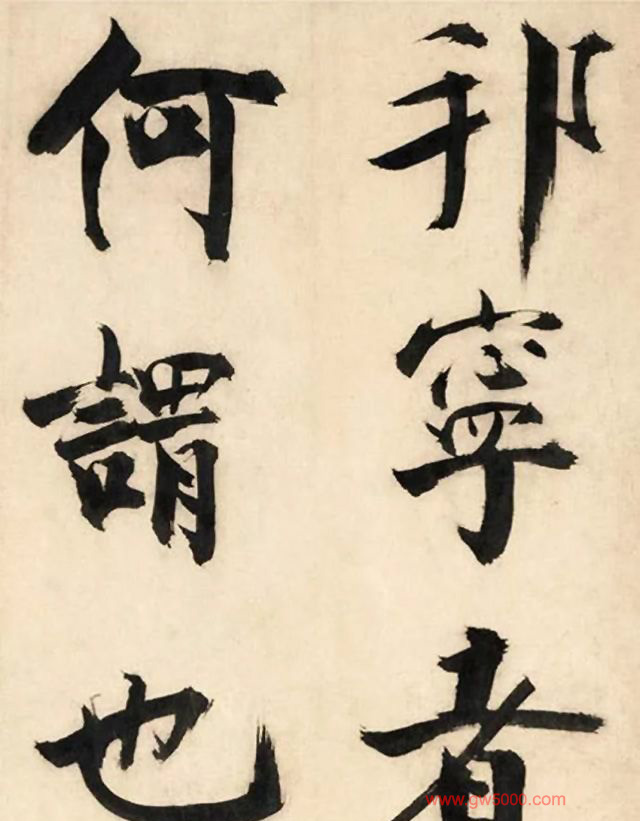 邦寧者
何謂也
www.gw5000.com